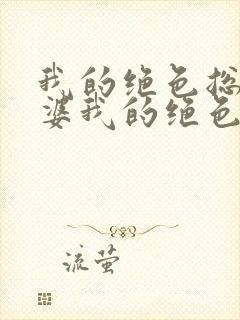 我的绝色总
婆我的绝色
流萤